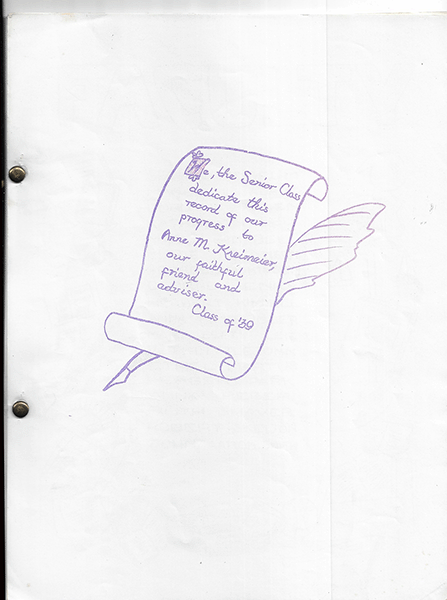 We, the Senior Class
dedicate this
record of our
progress to
Anne M. Kreimeier,
our faithful
friend and
adviser.
Class of '39